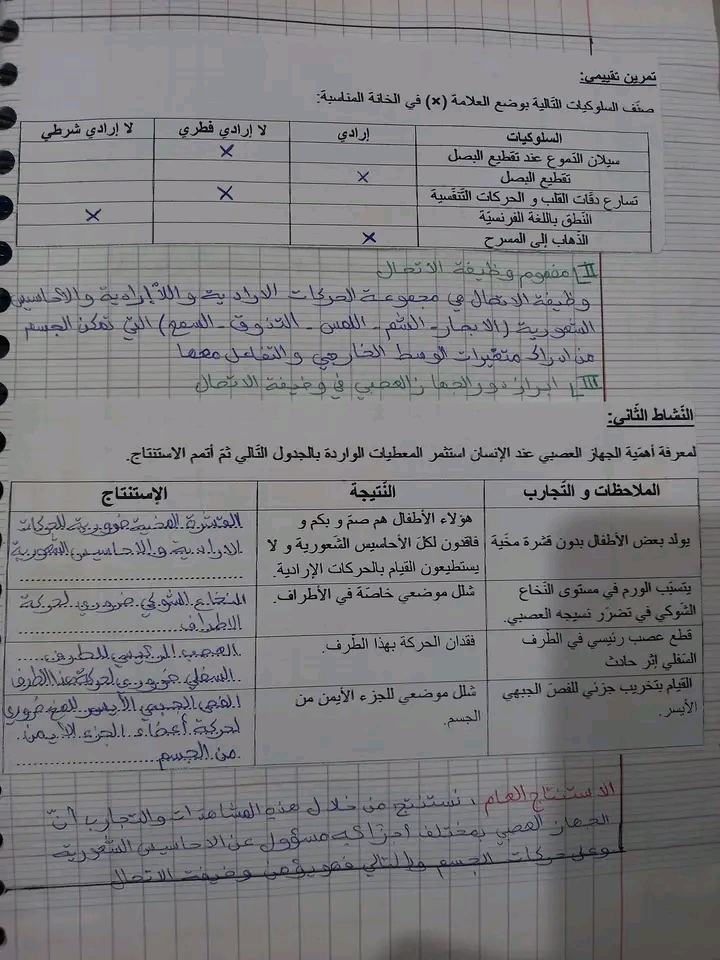 تمرين تقييمي:
صنّف السلوكيات التّالية بوضع العلامة (×) في الخانة المناسبة:
السلوكيات إرادي لا إرادي فطري لا إرادي شرطي
سيلان الدّموع عند تقطيع البصل ×
تقطيع البصل ×
تسارع دقّات القلب و الحركات التّنفّسيّة ×
النّطق باللغة الفرنسيّة ×
الذّهاب إلى المسرح ×
II/ مفهوم وظيفة الاتصال
وظيفة الاتصال هي مجموعة الحركات الارادية واللاّإرادية والأحاسيس
الشعورية (الابصار - الشم - اللمس - التذوق - السمع) التي تمكن الجسم
من ادراك متغيرات الوسط الخارجي والتفاعل معها
III/ ابراز دور الجهاز العصبي في وظيفة الاتصال
النّشاط الثّاني:
لمعرفة أهمّية الجهاز العصبي عند الإنسان استثمر المعطيات الواردة بالجدول التّالي ثمّ أتمم الاستنتاج.
الملاحظات و التّجارب النّتيجة الإستنتاج
يولد بعض الأطفال بدون قشرة مخّية
هؤلاء الأطفال هم صمّ و بكم و
فاقدون لكلّ الأحاسيس الشّعورية و لا
يستطيعون القيام بالحركات الإرادية.
القشرة المخية ضرورية للحركات
الارادية والاحاسيس الشعورية
يتسبّب الورم في مستوى النّخاع
الشّوكي في تضرّر نسيجه العصبي.
شلل موضعي خاصّة في الأطراف.
النخاع الشوكي ضروري لحركة
الاطراف
قطع عصب رئيسي في الطرف
السّفلي إثر حادث
فقدان الحركة بهذا الطّرف.
العصب الرئيسي للطرف
السفلي ضروري لحركة هذا الطرف
القيام بتخريب جزئي للفصّ الجبهي
الأيسر.
شلل موضعي للجزء الأيمن من
الجسم.
الفص الجبهي الأيسر للمخ ضروري
لحركة أعضاء الجزء الأيمن
من الجسم
الاستنتاج العام: نستنتج من خلال هذه المشاهدات والتجارب أنّ
الجهاز العصبي بمختلف أجزائه مسؤول عن الاحاسيس الشعورية
وعلى حركات الجسم وبالتالي فهو يؤمن وظيفة الاتصال